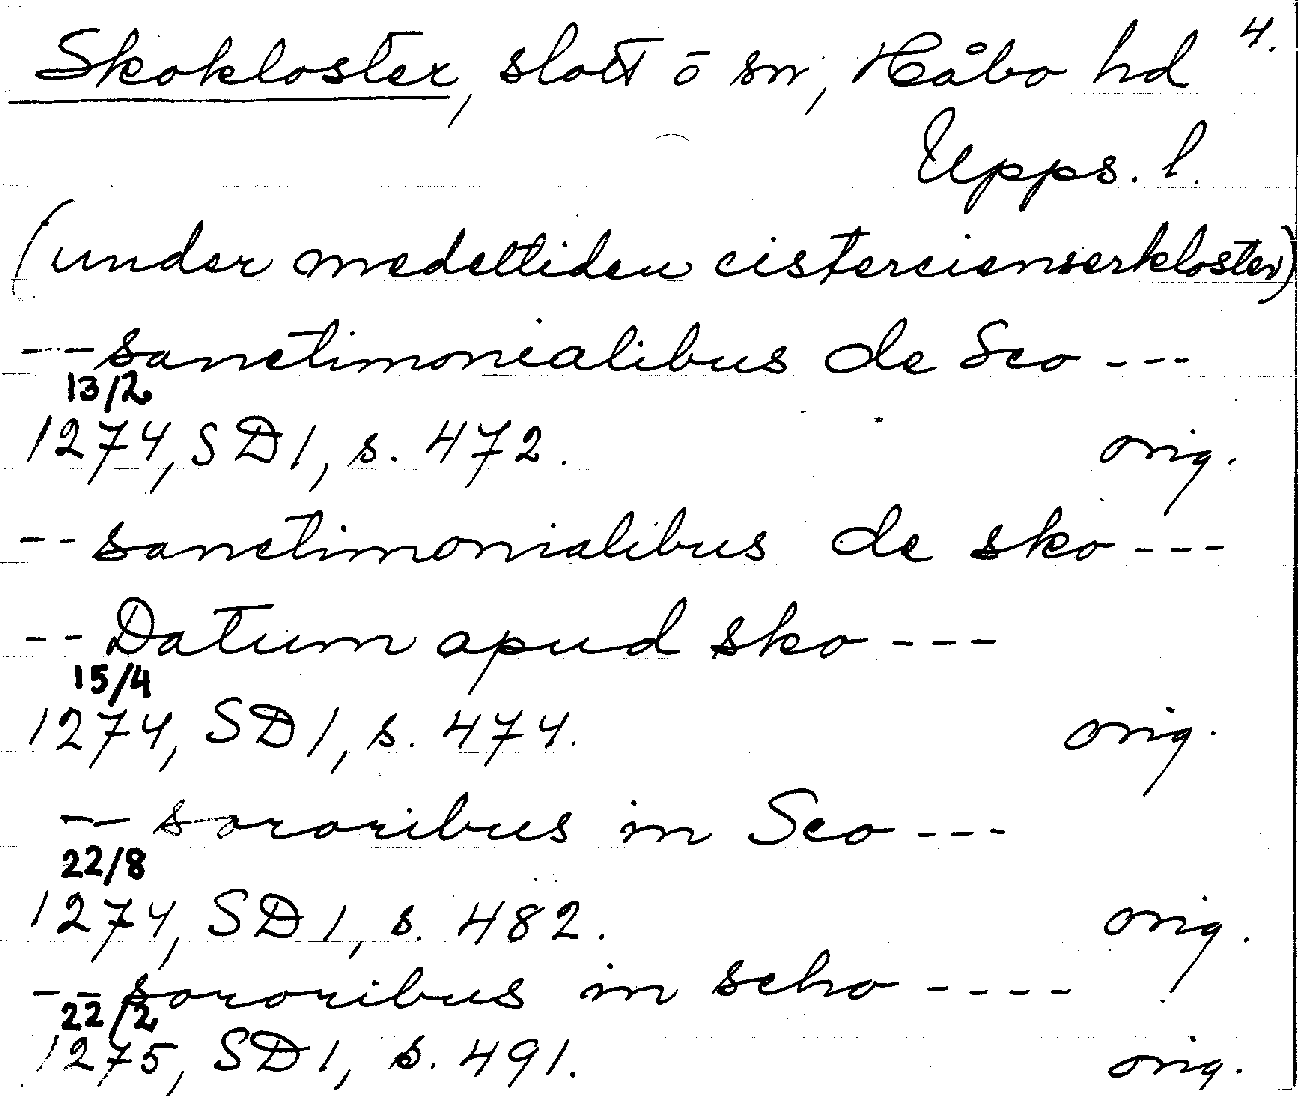 Skokloster, slott o sn, Håbo hd 4.
Upps. l.
(under medeltiden cistercienserkloster)
-- sanctimonialibus de Sco ---
13/2
1274, SD 1, s. 472. orig.
-- sanctimonialibus de sko ---
-- Datum apud sko ---
15/4
1274, SD 1, s. 474. orig.
-- sororibus in Sco ---
22/8
1274, SD 1, s. 482. orig.
-- sororibus in scho ----
22/2
1275, SD 1, s. 491. orig.